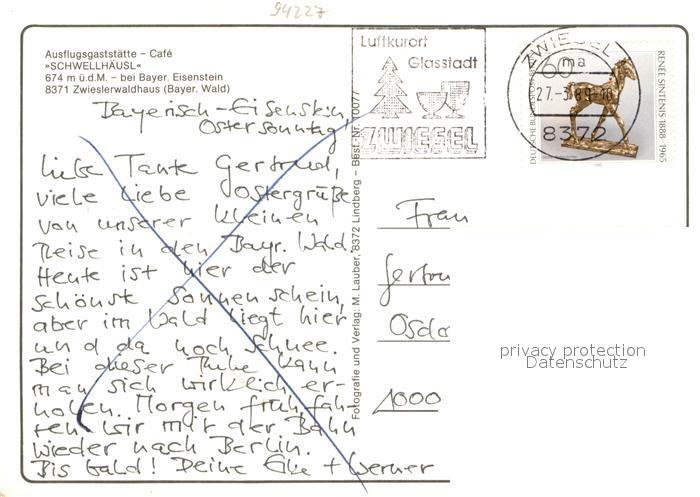 94227
Ausflugsgaststätte – Café
»SCHWELLHÄUSL«
674 m ü.d.M. – bei Bayer. Eisenstein
8371 Zwieslerwaldhaus (Bayer. Wald)
Bayerisch-Eisenstein,
Ostersonntag,
Liebe Tante Gertrud,
viele liebe Ostergrüße
von unserer kleinen
Reise in den Bayr. Wald.
Heute ist hier der
schönste Sonnenschein,
aber im Wald liegt hier
und da noch Schnee.
Bei dieser Ruhe kann
man sich wirklich er-
holen. Morgen früh fah-
ren wir mit der Bahn
wieder nach Berlin.
Bis bald! Deine Elke + Werner
Fotografie und Verlag: M. Lauber, 8372 Lindberg – Best.-Nr. 10077
Luftkurort
Glasstadt
ZWIESEL
ZWIESEL
ma
27.-3.89-18
8372
60
DEUTSCHE BUNDESPOST
RENÉE SINTENIS 1888-1965
Frau
Gertru
Osdo
1000
privacy protection
Datenschutz